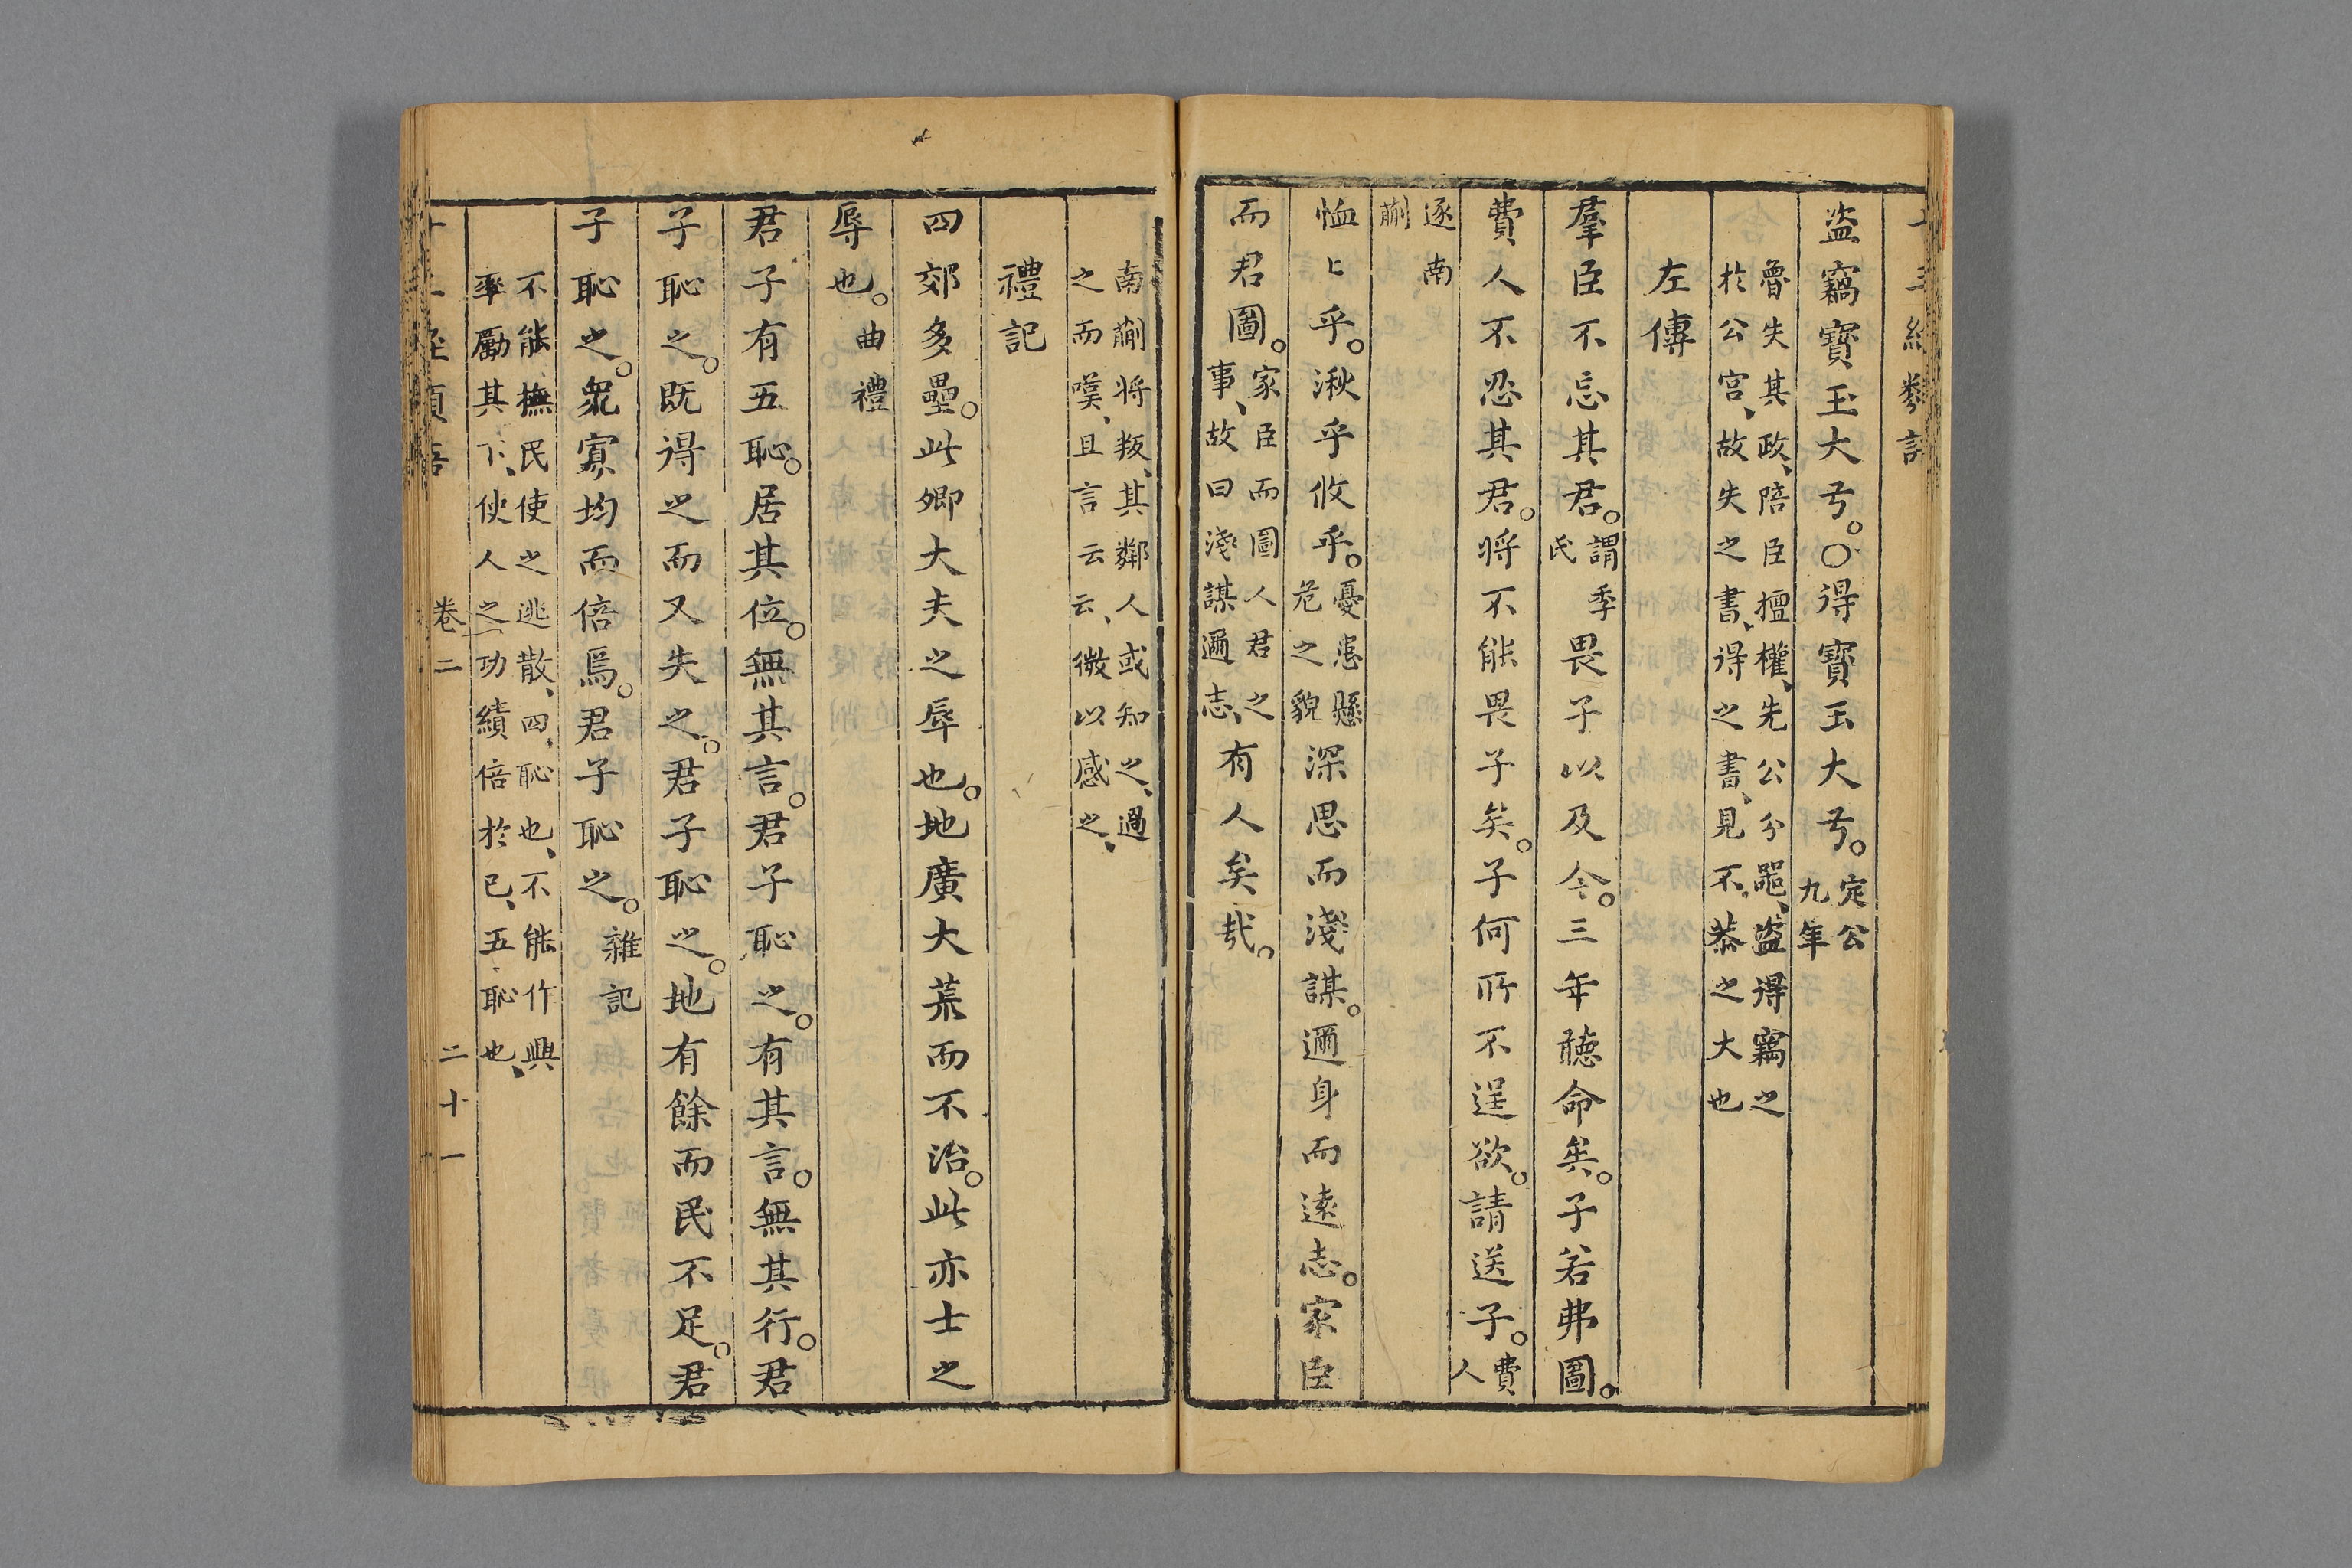 盗竊寶玉大弓。○得寶玉大弓。定公九年
魯失其政、陪臣擅權、先公分器、盗得竊之
於公宮、故失之書、得之書、見不恭之大也
左傳
羣臣不忘其君。謂季氏畏子以及今。三年聽命矣。子若弗圖。
費人不忍其君。将不能畏子矣。子何所不逞欲。請送子。費人
逐南蒯
恤〻乎。湫乎攸乎。憂患懸危之貌深思而淺謀。邇身而遠志。家臣
而君圖。家臣而圖人君之事、故曰淺謀邇志、有人矣㢤。
南蒯将叛、其鄰人或知之、過
之而嘆、且言云云、微以感之、
禮記
四郊多壘。此卿大夫之辱也。地廣大荒而不治。此亦士之
辱也。曲禮
君子有五恥。居其位。無其言。君子恥之。有其言。無其行。君
子恥之。既得之而又失之。君子恥之。地有餘而民不足。君
子恥之。衆寡均而倍焉。君子恥之。雜記
不能撫民使之逃散、四恥也、不能作興
率勵其下、使人之功績倍於己、五恥也、
卷二 二十一